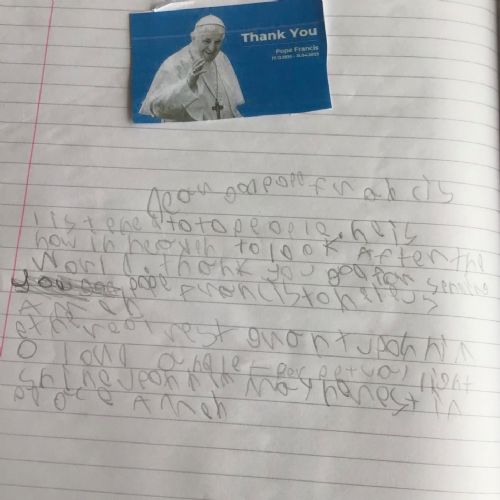 Thank You
Pope Francis
Dear god pope francis
listened to to people. he is
now in heaven to look After the
World. thank you god for sending
pope francis to help us
Amen
ethereol rest grant upon him
O lord let perpetual light
shine upon him may he rest in
peace Amen